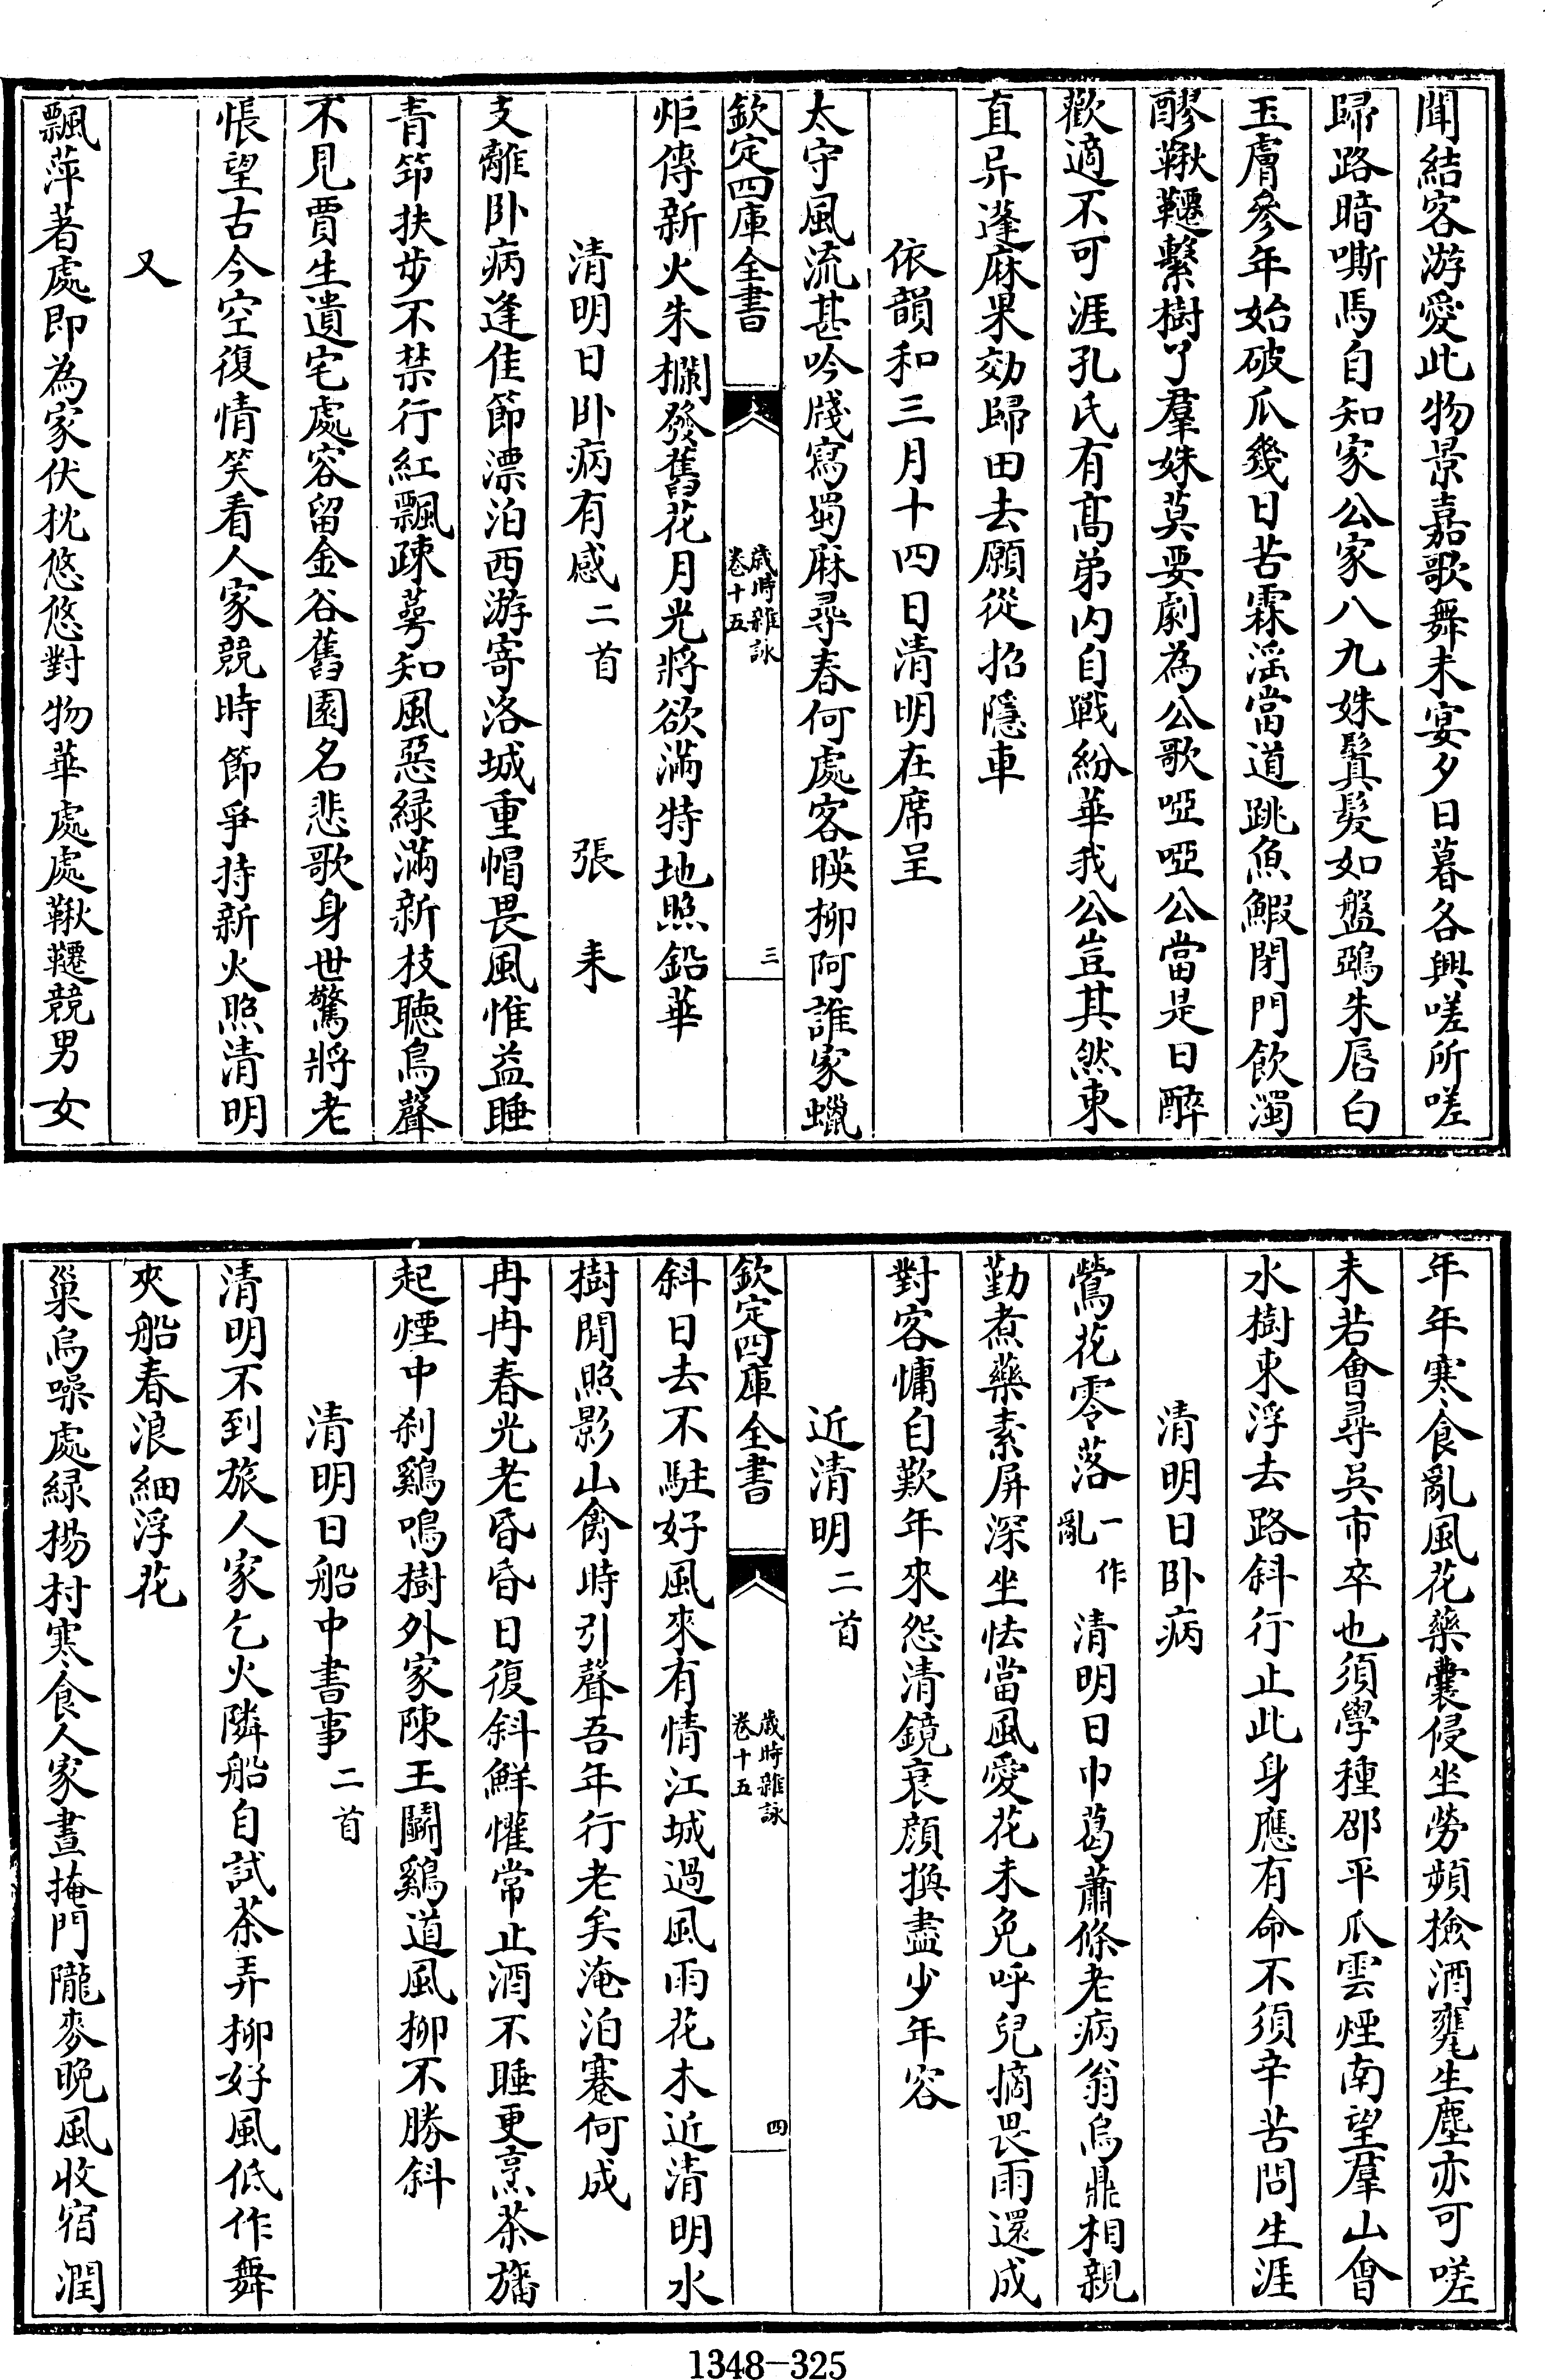 聞結客游愛此物景嘉歌舞未宴夕日暮各興嗟所嗟
歸路暗嘶馬自知家公家八九姝鬒髮如盤鵶朱唇白
玉膚參年始破瓜幾日苦霖淫當道跳魚鰕閉門飲濁
醪鞦韆繫樹丫羣姝莫要劇為公歌啞啞公當是日醉
歡適不可涯孔氏有髙弟内自戰紛華我公豈其然東
直异蓬麻果効歸田去願從招隱車
依韻和三月十四日清明在席呈
太守風流甚吟牋寫蜀麻尋春何處客暎柳阿誰家蠟
欽定四庫全書
歲時雜詠
卷十五
三
炬傳新火朱欄發舊花月光將欲滿特地照鉛華
清明日卧病有感二首 張耒
支離卧病逢佳節漂泊西游寄洛城重帽畏風惟益睡
青筇扶步不禁行紅飄疎萼知風惡緑滿新枝聽鳥聲
不見賈生遺宅處容留金谷舊園名悲歌身世驚將老
悵望古今空復情笑看人家競時節爭持新火照清明
又
飄萍著處即為家伏枕悠悠對物華處處鞦韆競男女
年年寒食亂風花藥囊侵坐勞頻撿酒甕生塵亦可嗟
未若會尋吳市卒也須學種邵平瓜雲煙南望羣山㑹
水樹東浮去路斜行止此身應有命不須辛苦問生涯
清明日卧病
鶯花零落一作亂清明日巾葛蕭條老病翁烏鼎相親
勤煮藥素屏深坐怯當風愛花未免呼兒摘畏雨還成
對客慵自歎年來怨清鏡衰顔換盡少年容
近清明二首
欽定四庫全書
歲時雜詠
卷十五
四
斜日去不駐好風來有情江城過風雨花木近清明水
樹閒照影山禽時引聲吾年行老矣淹泊蹇何成
冉冉春光老昏昏日復斜鮮懽常止酒不睡更烹茶旛
起煙中刹鷄鳴樹外家陳王鬭鷄道風柳不勝斜
清明日船中書事二首
清明不到旅人家乞火隣船自試茶弄柳好風低作舞
夾船春浪細浮花
巢烏噪處緑楊村寒食人家晝掩門隴麥晚風收宿潤
1348-325